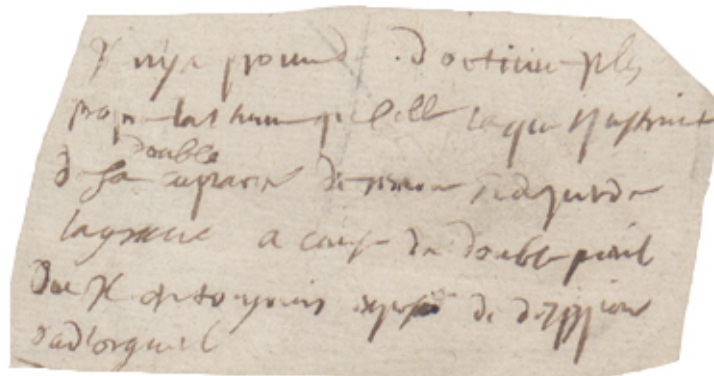 Il n'y a point de doctrine plus
propre a l'homme que celle la qui l'instruit
double
de sa capacité de recevoir et de perdre
la grace a cause du double peril
ou il est toujours exposé de desespoir
ou d'orgueil